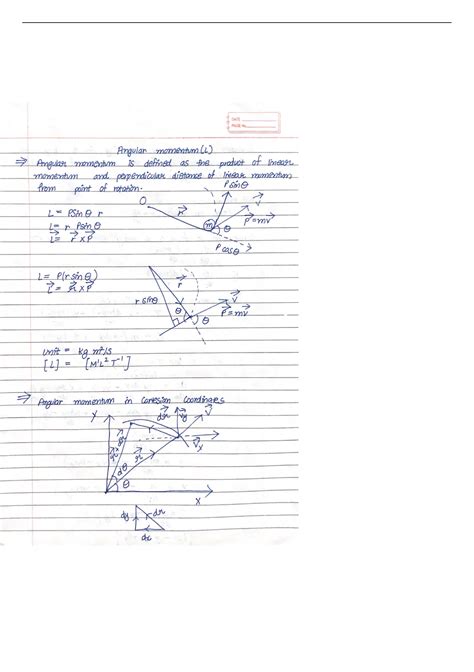 DATE
PAGE No.
Angular momentum (L)
⇒ Angular momentum is defined as the product of linear
momentum and perpendicular distance of linear momentum
from point of rotation.
P sinθ
O
r⃗
V⃗
L = Psinθ r
m
θ
L = r Psinθ
P⃗ = mv⃗
L⃗ = r⃗ × P⃗
P cosθ
L = P(r sinθ)
r⃗
L⃗ = r⃗ × P⃗
r sinθ
θ
V⃗
θ
P⃗ = mv⃗
Unit = kg m²/s
[L] = [M¹L²T⁻¹]
⇒ Angular momentum in Cartesian Coordinates
Y
dθ
θ
X
dy
dr
dx